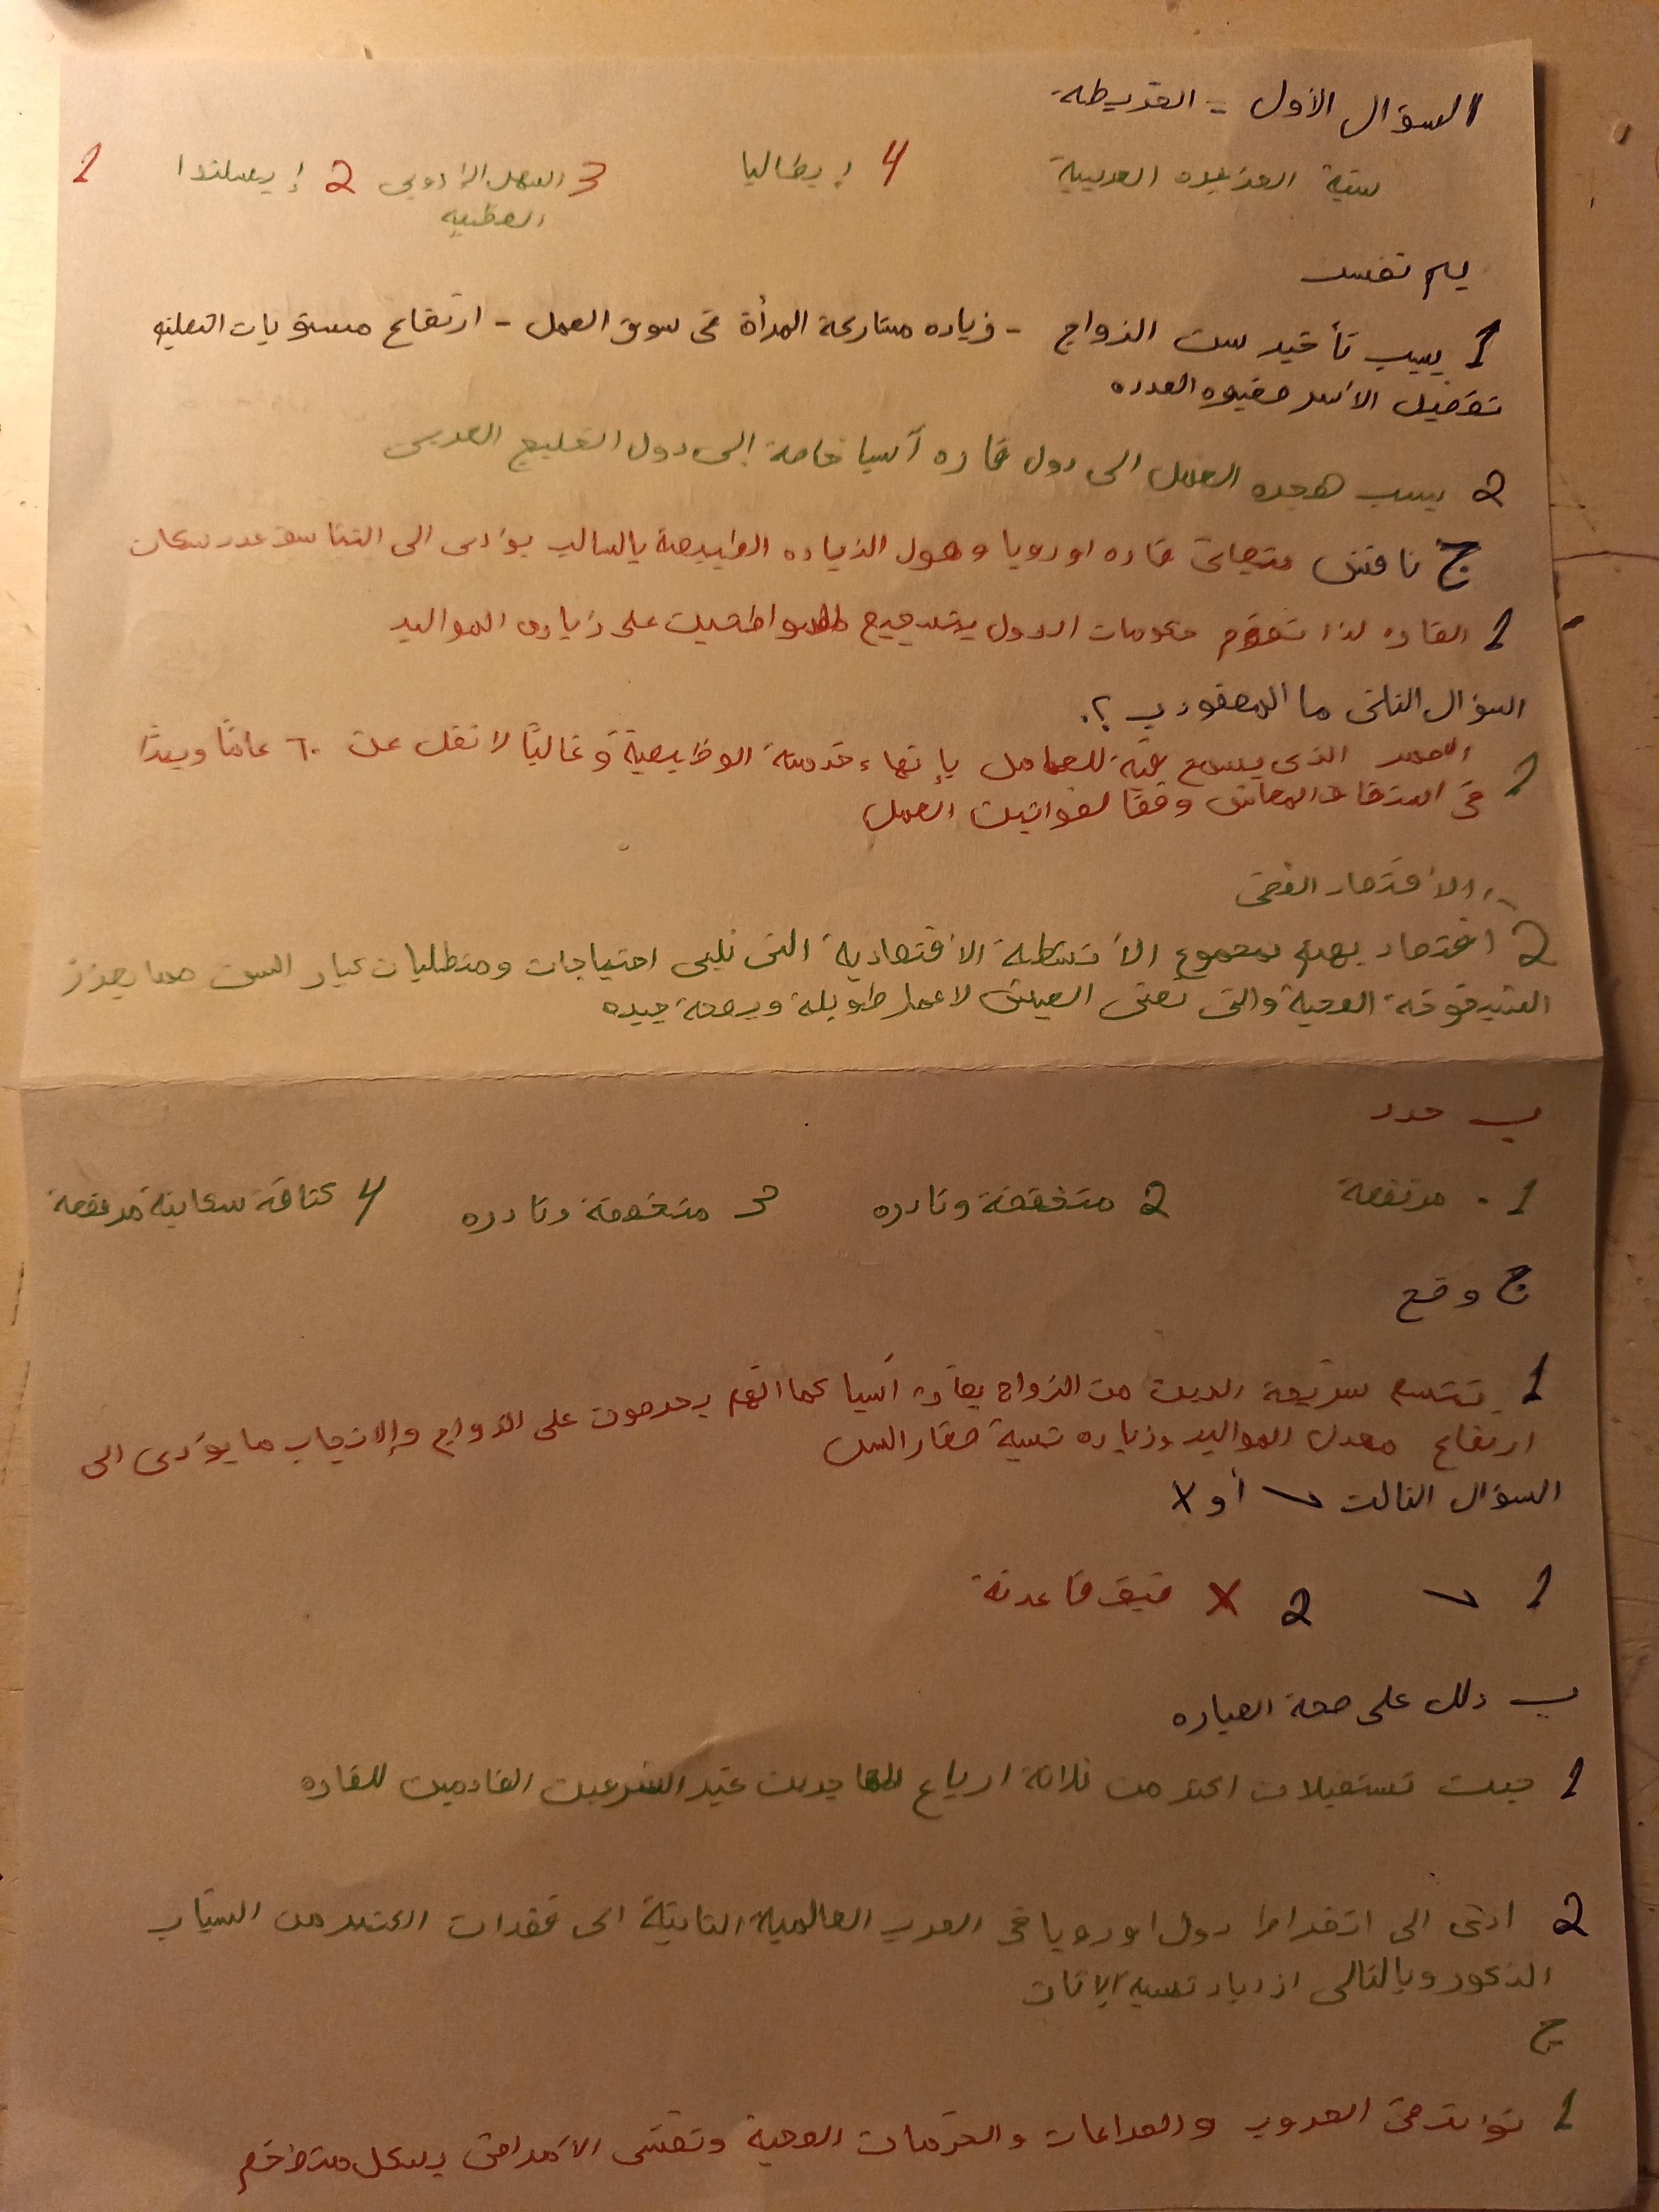 السؤال الأول = الخريطة
1 شبه الجزيرة العربية 4 إيطاليا 3 السهل الأوروبي 2 إيسلندا
العظيم
ب بم تفسر
1 بسبب تأخير سن الزواج - زيادة مشاركة المرأة فى سوق العمل - ارتفاع مستويات التعليم
تفضيل الأسر صغيره العدد
2 بسبب هجره العمل الى دول قاره آسيا خاصة إلى دول الخليج العربى
ج ناقش قاره اوروبا الزياده الطبيعية بالسالب يؤدى الى عدد سكان
1 القاره لذا تقوم حكومات الدول بتشجيع المواطنين على زيادة المواليد
السؤال الثانى ما المقصود ب ؟
1 العمر الذى يسمح فيه للعامل بإنهاء خدمته الوظيفية وغالبًا لا تقل عن ٦٠ عامًا ويبدأ
فى المعاش وفقا لقوانين العمل
الاقتصاد الفضى
2 اقتصاد يهتم بمجموع الأنشطة الاقتصادية التى تلبى احتياجات ومتطلبات كبار السن مما يعزز
الصحية والتى تعنى العيش لاعمار طويلة وبصحة جيده
ب حدد
1 - مرتفعة 2 منخفضة ونادره 3 منخفضة ونادره 4 كثافة سكانية مرتفعة
ج وقع
1 تتسع شريحة الدين من الزواج بقارة آسيا كما انهم يحرصون على الزواج والإنجاب ما يؤدى الى
ارتفاع معدل المواليد وزياده نسبة صغار السن
السؤال الثالث ✓ أو X
1 ✓ 2 X ضيق قاعدته
ب دلل على صحة العباره
1 حيث تستقبل اكثر من ثلاثة ارباع المهاجرين غير الشرعين القادمين للقاره
2 ادى الى انخراط دول اوروبا فى الحرب العالمية الثانية الى فقدان الكثير من الشباب
الذكور وبالتالى ازدياد نسبة الإناث
ج
1 الحروب والصراعات والخدمات الصحية وتفشى الأمراض بشكل